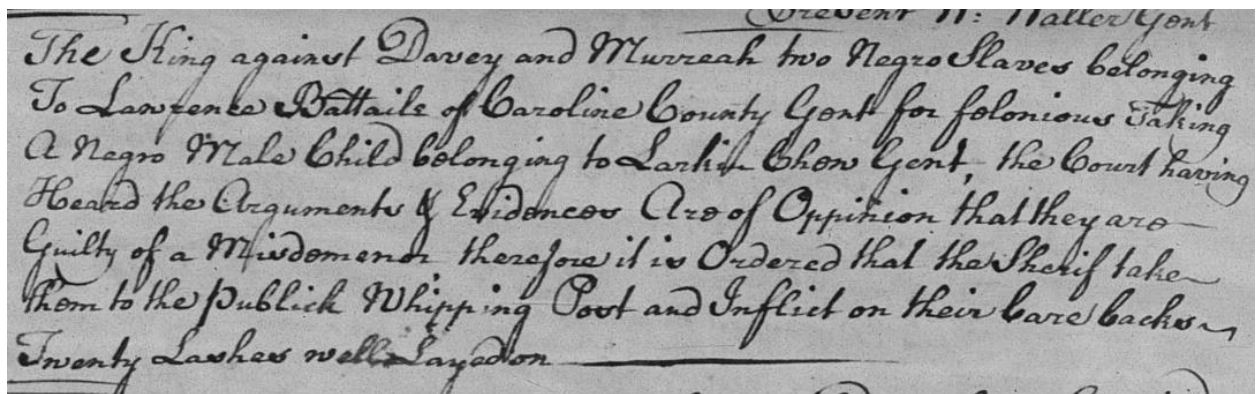 Present W: Waller Gent
The King against Davey and Murreah two Negro Slaves belonging
To Lawrence Battaile of Caroline County Gent for felonious Taking
A Negro Male Child belonging to Larkin Chew Gent, the Court having
Heard the Arguments & Evidences Are of Oppinion that they are
Guilty of a Misdemenor therefore it is Ordered that the Sherif take
them to the Publick Whipping Post and Inflict on their bare backs
Twenty Lashes well Layed on